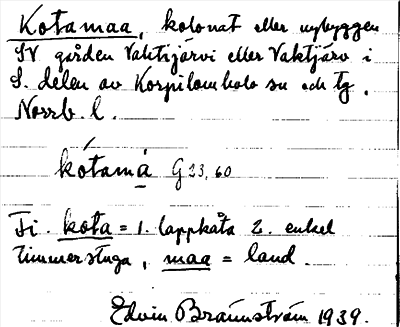 Kotamaa, kolonat eller nybyggen
SV gården Vahtijärvi eller Vaktjärv i
S. delen av Korpilombolo sn och tg.
Norrb. l.
kótamá̱ G 23, 60
Fi. kota = 1. lappkåta 2. enkel
timmerstuga, maa = land.
Edvin Brännström 1939.